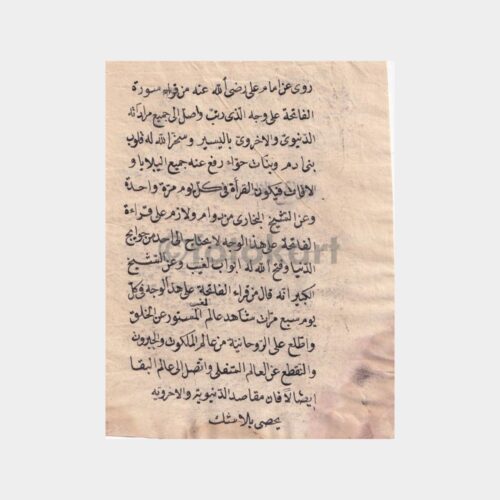 روى عن امام على رضى الله عنه من قراء سورة
الفاتحة على وجه الذى رتب واصل الى جميع مراداته
الدنيوى والاخروى باليسير وسخر الله له قلوب
بنى ادم وبنات حواء رفع عنه جميع البلايا و
الافات فيكون القرأة فى كل يوم مرة واحدة
وعن الشيخ البخارى من دوام ولازم على قراءة
الفاتحة على هذا الوجه لا يحتاج الى احد من حوايج
الدنيا وفتح الله له ابواب الغيب وعن الشيخ
الكبير انه قال من قراء الفاتحة على هذا الوجه فى كل
يوم سبع مرات شاهد عالم الغيب المستور عن الخلق
واطلع على الروحانية من عالم الملكوت والجبروت
والنقطع عن العالم السفلى واتصل الى عالم البقا
ايصالا فان مقاصد الدنيوية والاخرويه
يحصى بلا شك